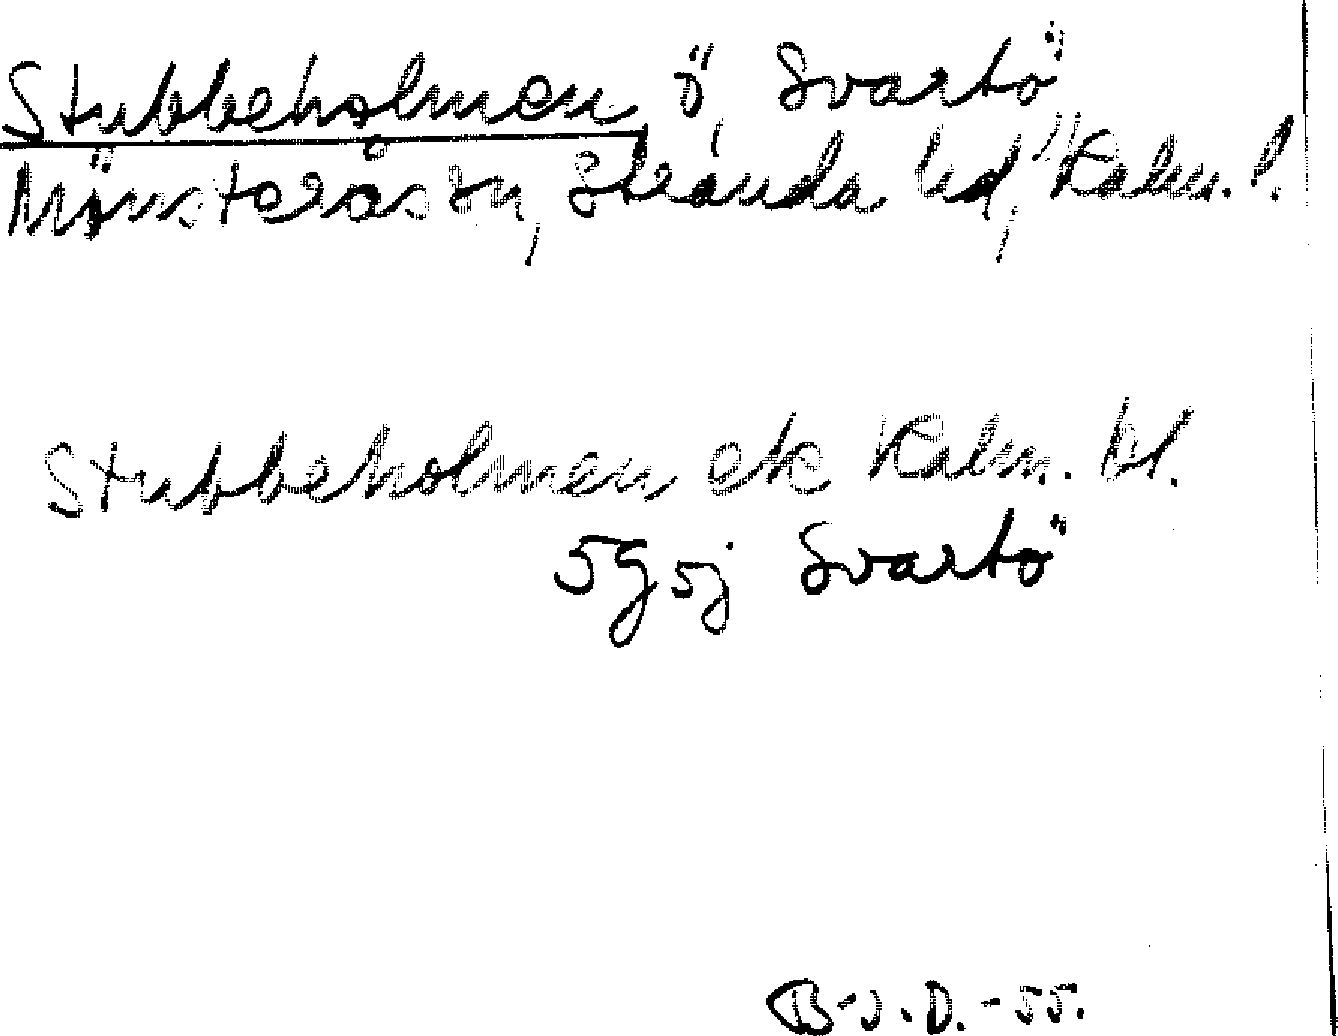 Stubbeholmen, ö, Svartö
Mönsterås sn, Stranda hd, Kalm. l.
Stubbeholmen ek Kalm. bl.
5g5j Svartö
B-J.D.-55.